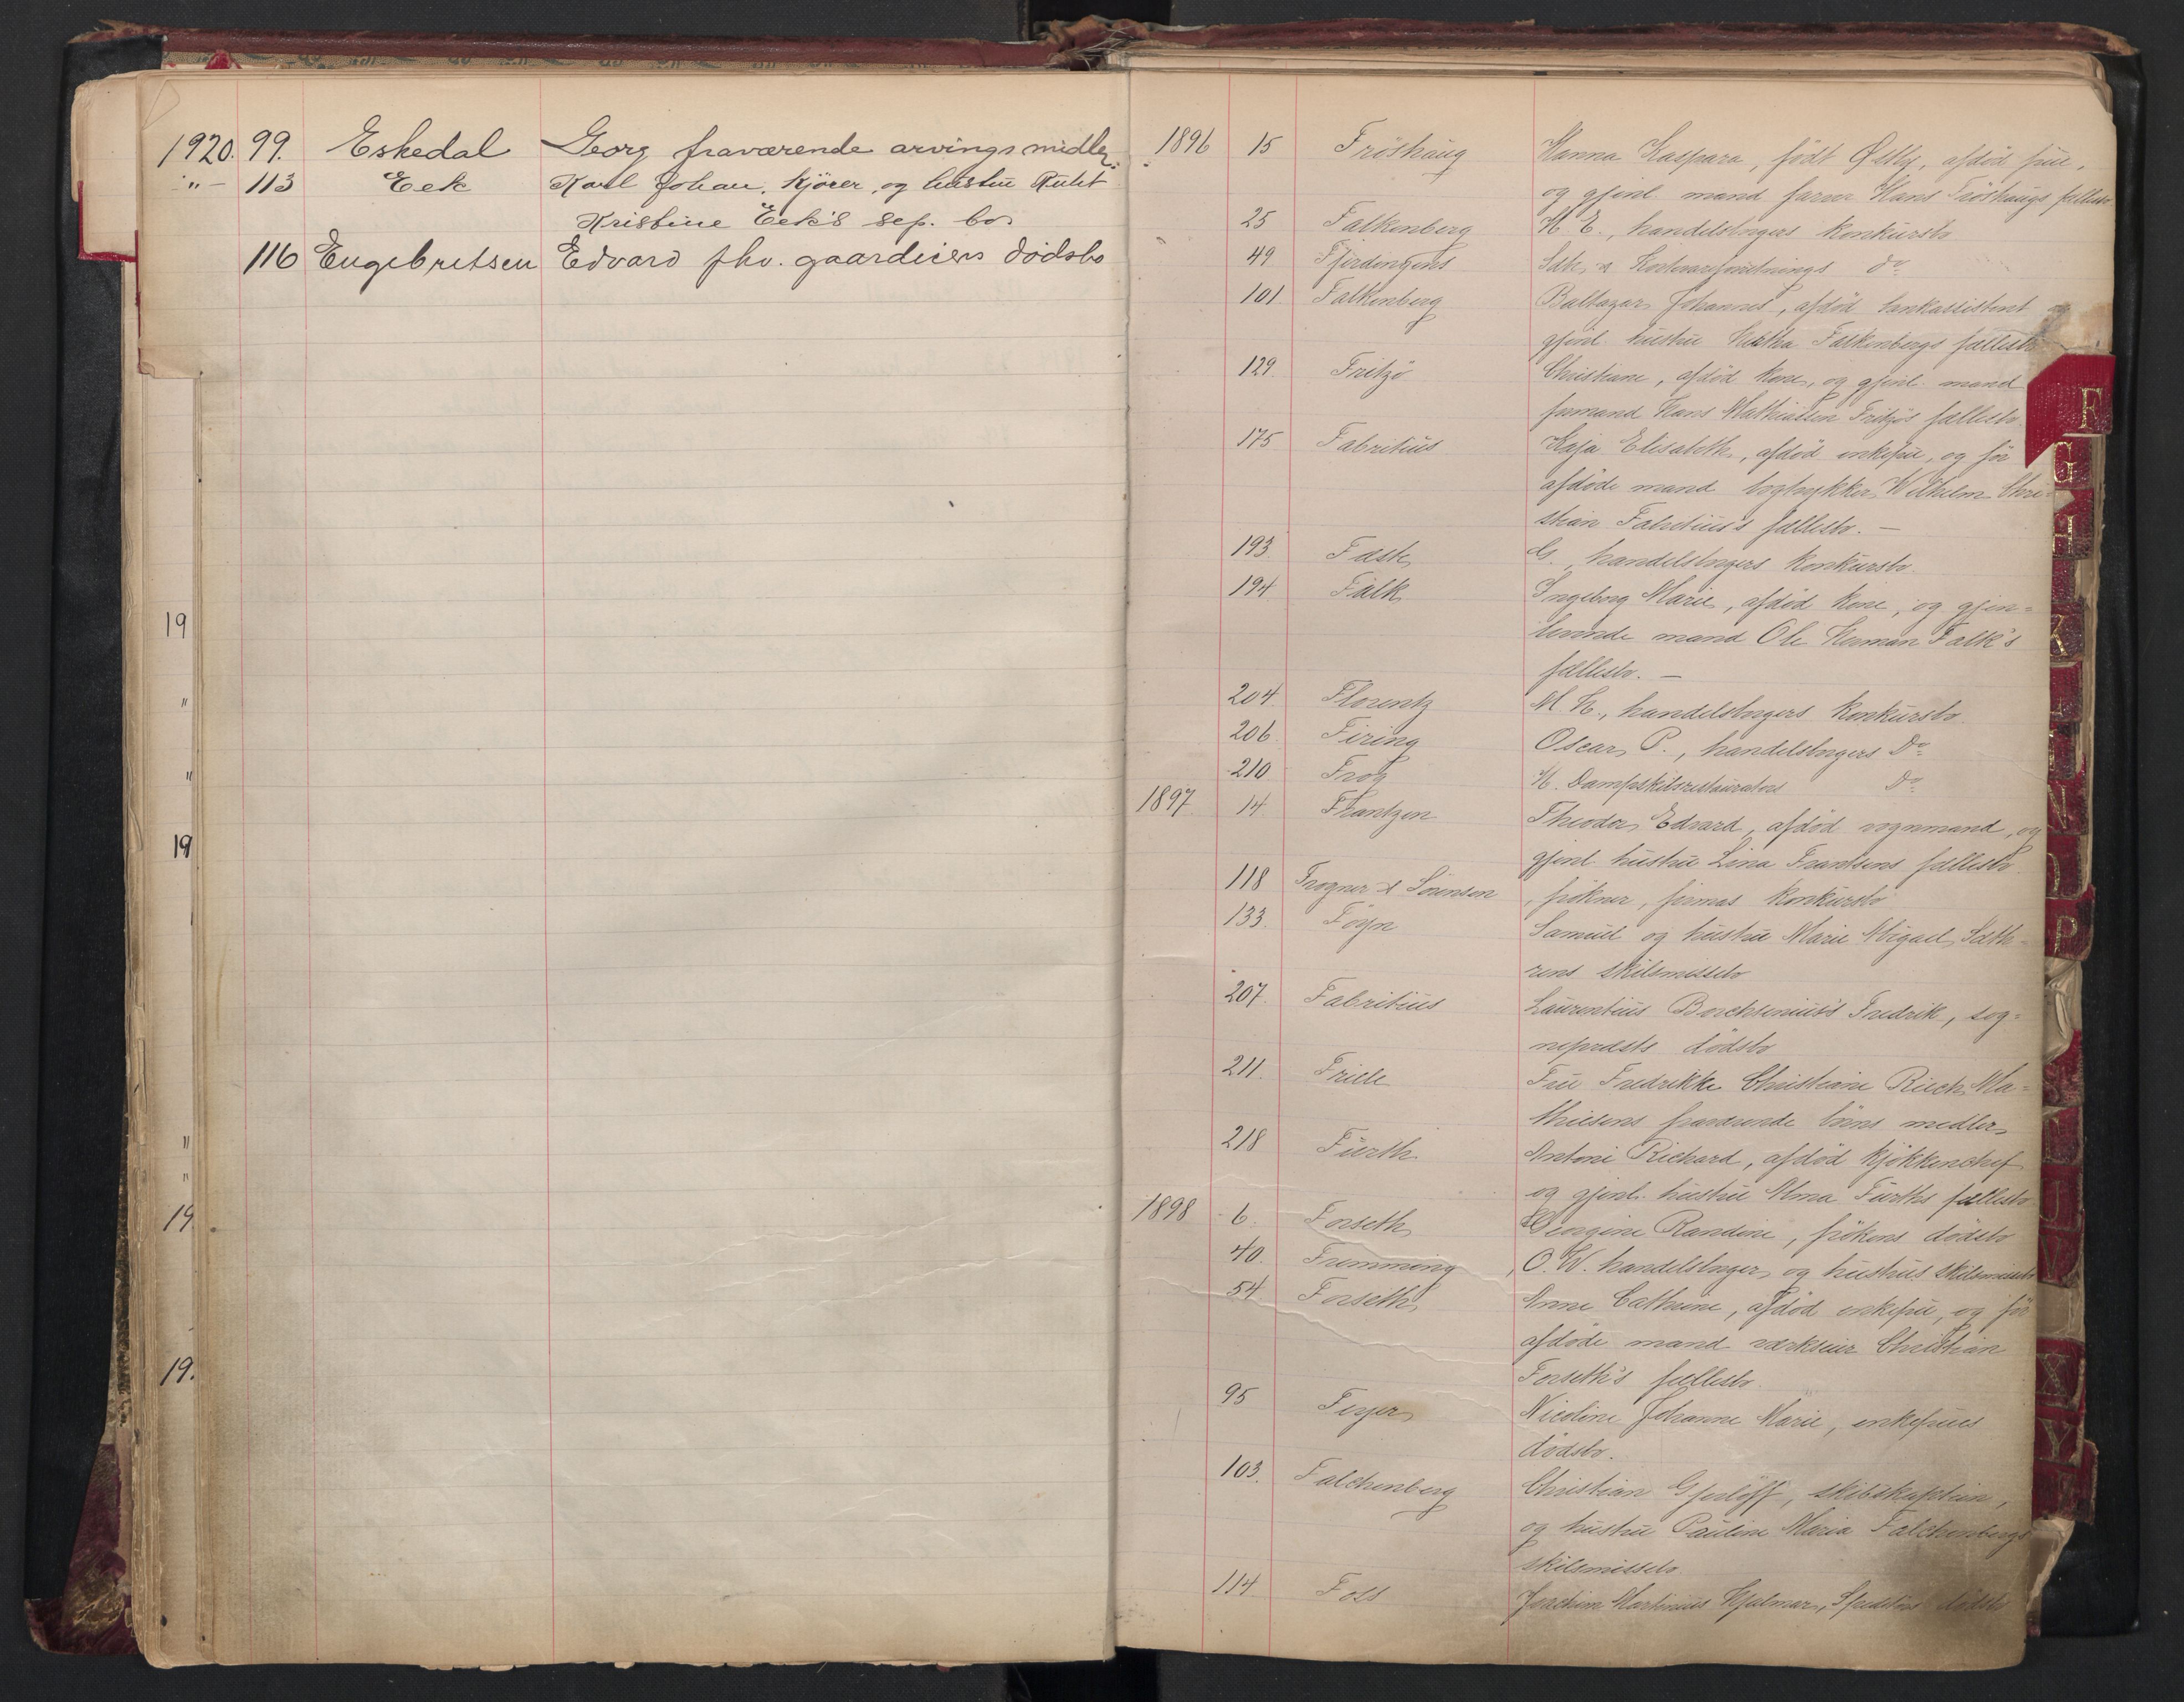 1920. 99. Eskedal Georg fraværende arvings midler
" - 113 Eek Karl Johan, kjører, og hustru Ruht
Kristine Eek's sep. bo
116 Engebretsen Edvard fhv. gaardeiers dødsbo
19
"
"
19
"
"
19
19.
1896 15 Fröshaug Hanna Kaspara, født Østby, afdöd frue,
og gjenl. mand farver Hans Fröshaugs fællesbo
25 Falkenberg H. E., handelsborgers konkursbo
49 Fjerdingens do
101 Falkenberg Baltazar Johannes, afdöd bankassistent og
gjenl. hustru Falkenbergs fællesbo
129. Fritzö Christiane, afdöd kone, og gjenl. mand
formand Hans Mathiassen Fritzös fællesbo
175 Fabritius Kaja Elisabeth, afdöd enkefrue, og før
afdöde mand bogtrykker Wilhelm Chri=
stian Fabritius's fællesbo. —
193 Fæste G., handelsborgers konkursbo.
194 Falk Ingeborg Marie, afdöd kone, og gjen=
levende mand Ole Herman Falk's
fællesbo. —
204 Florentz M. H., handelsborgers konkursbo.
206 Firing Oscar P., handelsborgers Do
210 Frog H. Dampskibsrestauratörs Do
1897 14 Frantzen Theodor Edvard, afdöd vognmand, og
gjenl. hustru Lina Frantzens fællesbo.
118 Frogner & Sörensen, frökner, firmas konkursbo
133. Föyn Samuel og hustru Marie Abigael, Sæth=
rens skilsmissebo
207. Fabritius Laurentius Borchsenius's Fredrik, sog=
neprests dödsbo
211. Friele Frue Fredrikke Christiane Riech Ma=
thiesens fraværende börns midler
218 Fürth Antoni Richard, afdöd kjökkenchef
og gjenl. hustru Alma Fürths fællesbo
1898 6. Forseth Georgine Randine, frökens dödsbo
40. Fremming, O. W. handelsborger, og hustrus skilsmissebo
54 Forseth Anne Cathrine, afdöd enkefrue, og før
afdöde mand værkseier Christian
Forseth's fællesbo.
95 Nicoline Johanne Marie, enkefrues
dödsbo.
103. Falchenberg Christian Gjerløff, skibskaptein,
og hustru Pauline Maria Falchenbergs
skilsmissebo
114 Foss Joachim Martinius Hjalmar, Speditörs dödsbo
F
G
H
K
L
N
O
P
U
V
X
Y